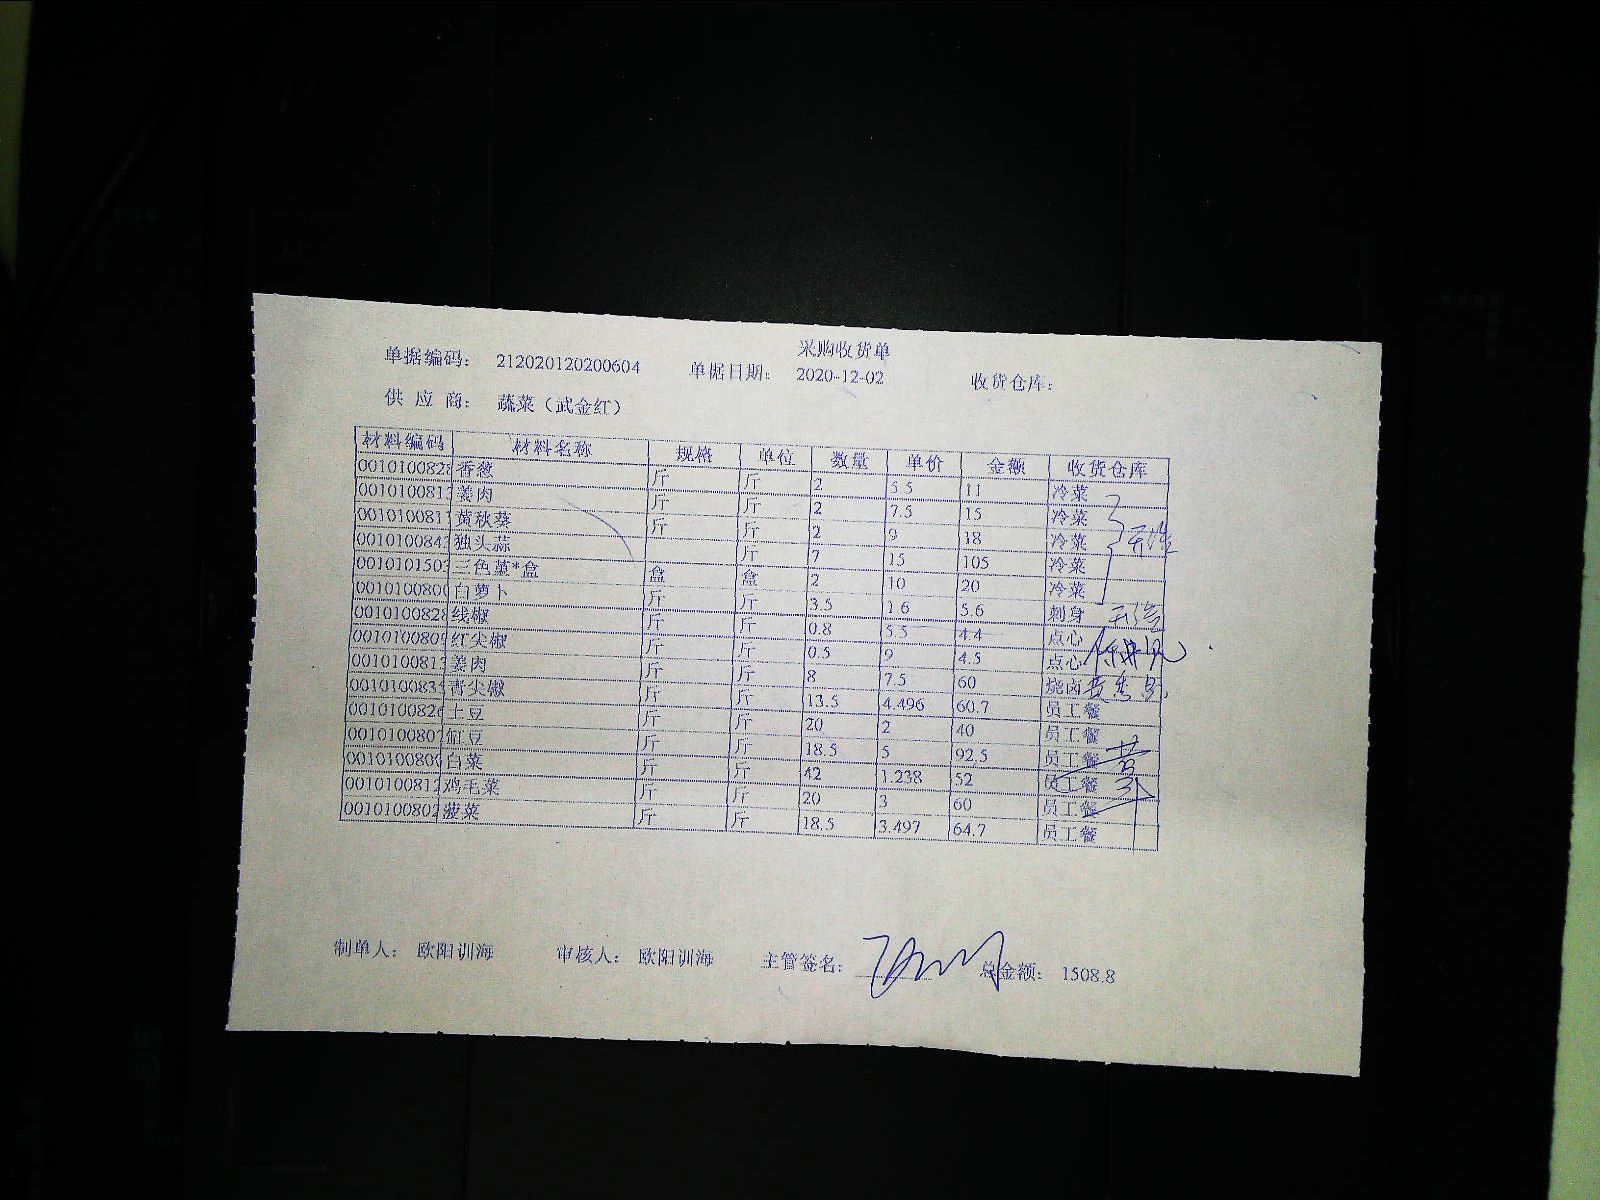 采购收货单
单据编码： 212020120200604 单据日期： 2020-12-02 收货仓库：
供 应 商： 蔬菜（武金红）
材料编码 材料名称 规格 单位 数量 单价 金额 收货仓库
0010100828 香葱 斤 斤 2 5.5 11 冷菜
001010081 姜肉 斤 斤 2 7.5 15 冷菜
001010081 黄秋葵 斤 斤 2 9 18 冷菜
001010084 独头蒜 斤 7 15 105 冷菜
001010150 三色堇*盒 盒 盒 2 10 20 冷菜
001010080 白萝卜 斤 斤 3.5 1.6 5.6 刺身
001010082 线椒 斤 斤 0.8 5.5 4.4 点心
001010080 红尖椒 斤 斤 0.5 9 4.5 点心
001010081 姜肉 斤 斤 8 7.5 60 烧卤
001010083 青尖椒 斤 斤 13.5 4.496 60.7 员工餐
001010082 土豆 斤 斤 20 2 40 员工餐
001010080 缸豆 斤 斤 18.5 5 92.5 员工餐
001010080 白菜 斤 斤 42 1.238 52 员工餐
001010081 鸡毛菜 斤 斤 20 3 60 员工餐
001010080 菠菜 斤 斤 18.5 3.497 64.7 员工餐
制单人： 欧阳训海 审核人： 欧阳训海 主管签名： 总金额： 1508.8